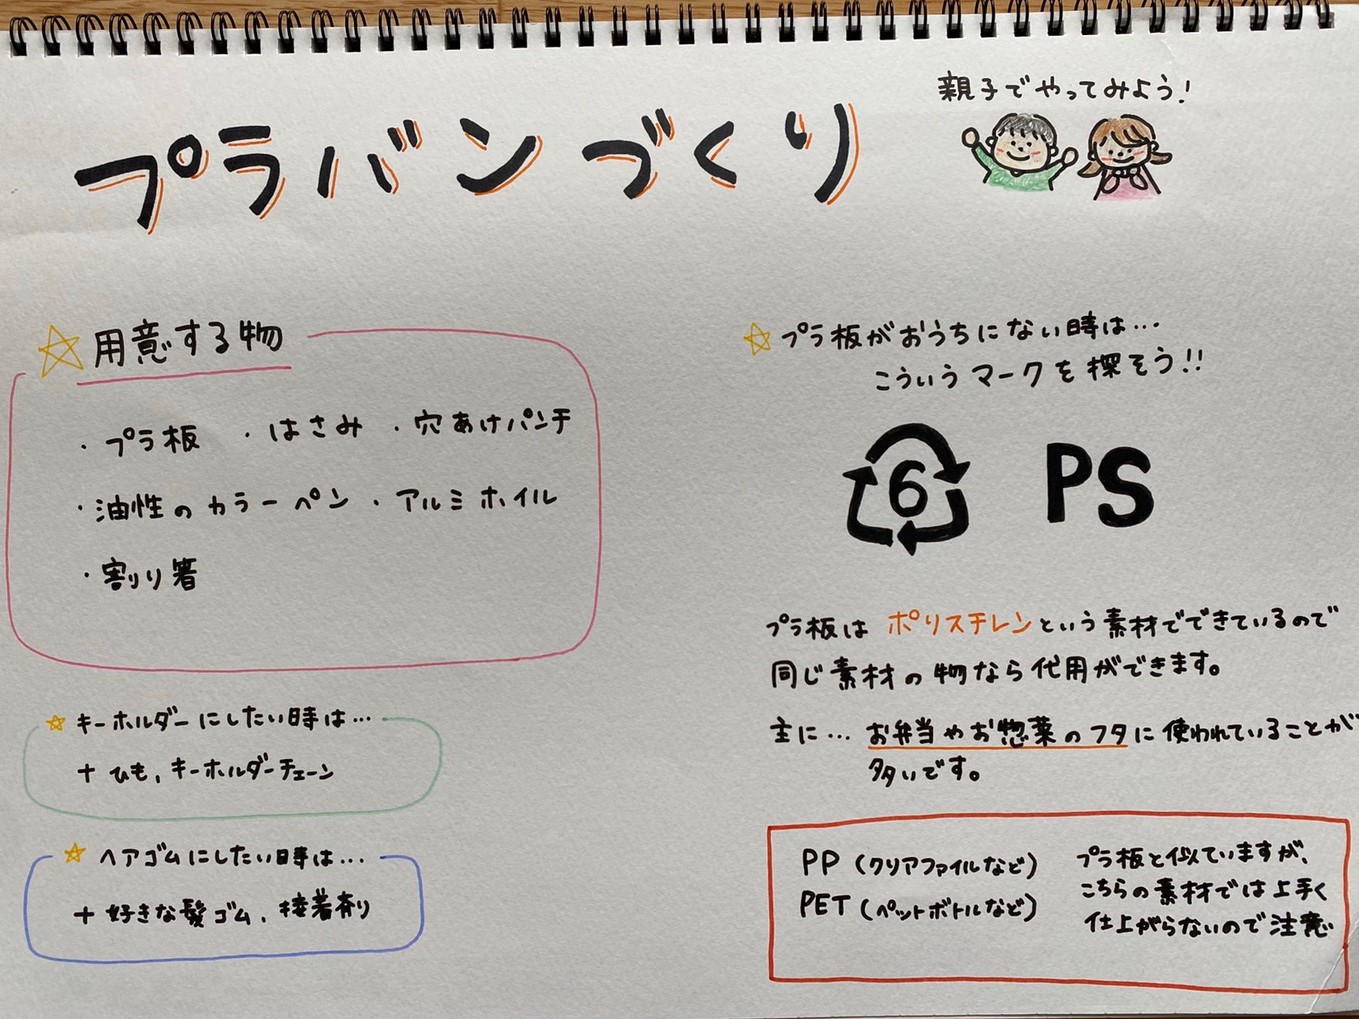 プラバンづくり
親子でやってみよう！
☆用意する物
・プラ板 ・はさみ ・穴あけパンチ
・油性のカラーペン ・アルミホイル
・割り箸
☆キーホルダーにしたい時は…
＋ひも、キーホルダーチェーン
☆ヘアゴムにしたい時は…
＋好きな髪ゴム、接着剤
☆プラ板がおうちにない時は…
こういうマークを探そう!!
6 PS
プラ板はポリスチレンという素材でできているので
同じ素材の物なら代用ができます。
主に…お弁当やお惣菜のフタに使われていることが
多いです。
PP（クリアファイルなど）
PET（ペットボトルなど）
プラ板と似ていますが、
こちらの素材では上手く
仕上がらないので注意